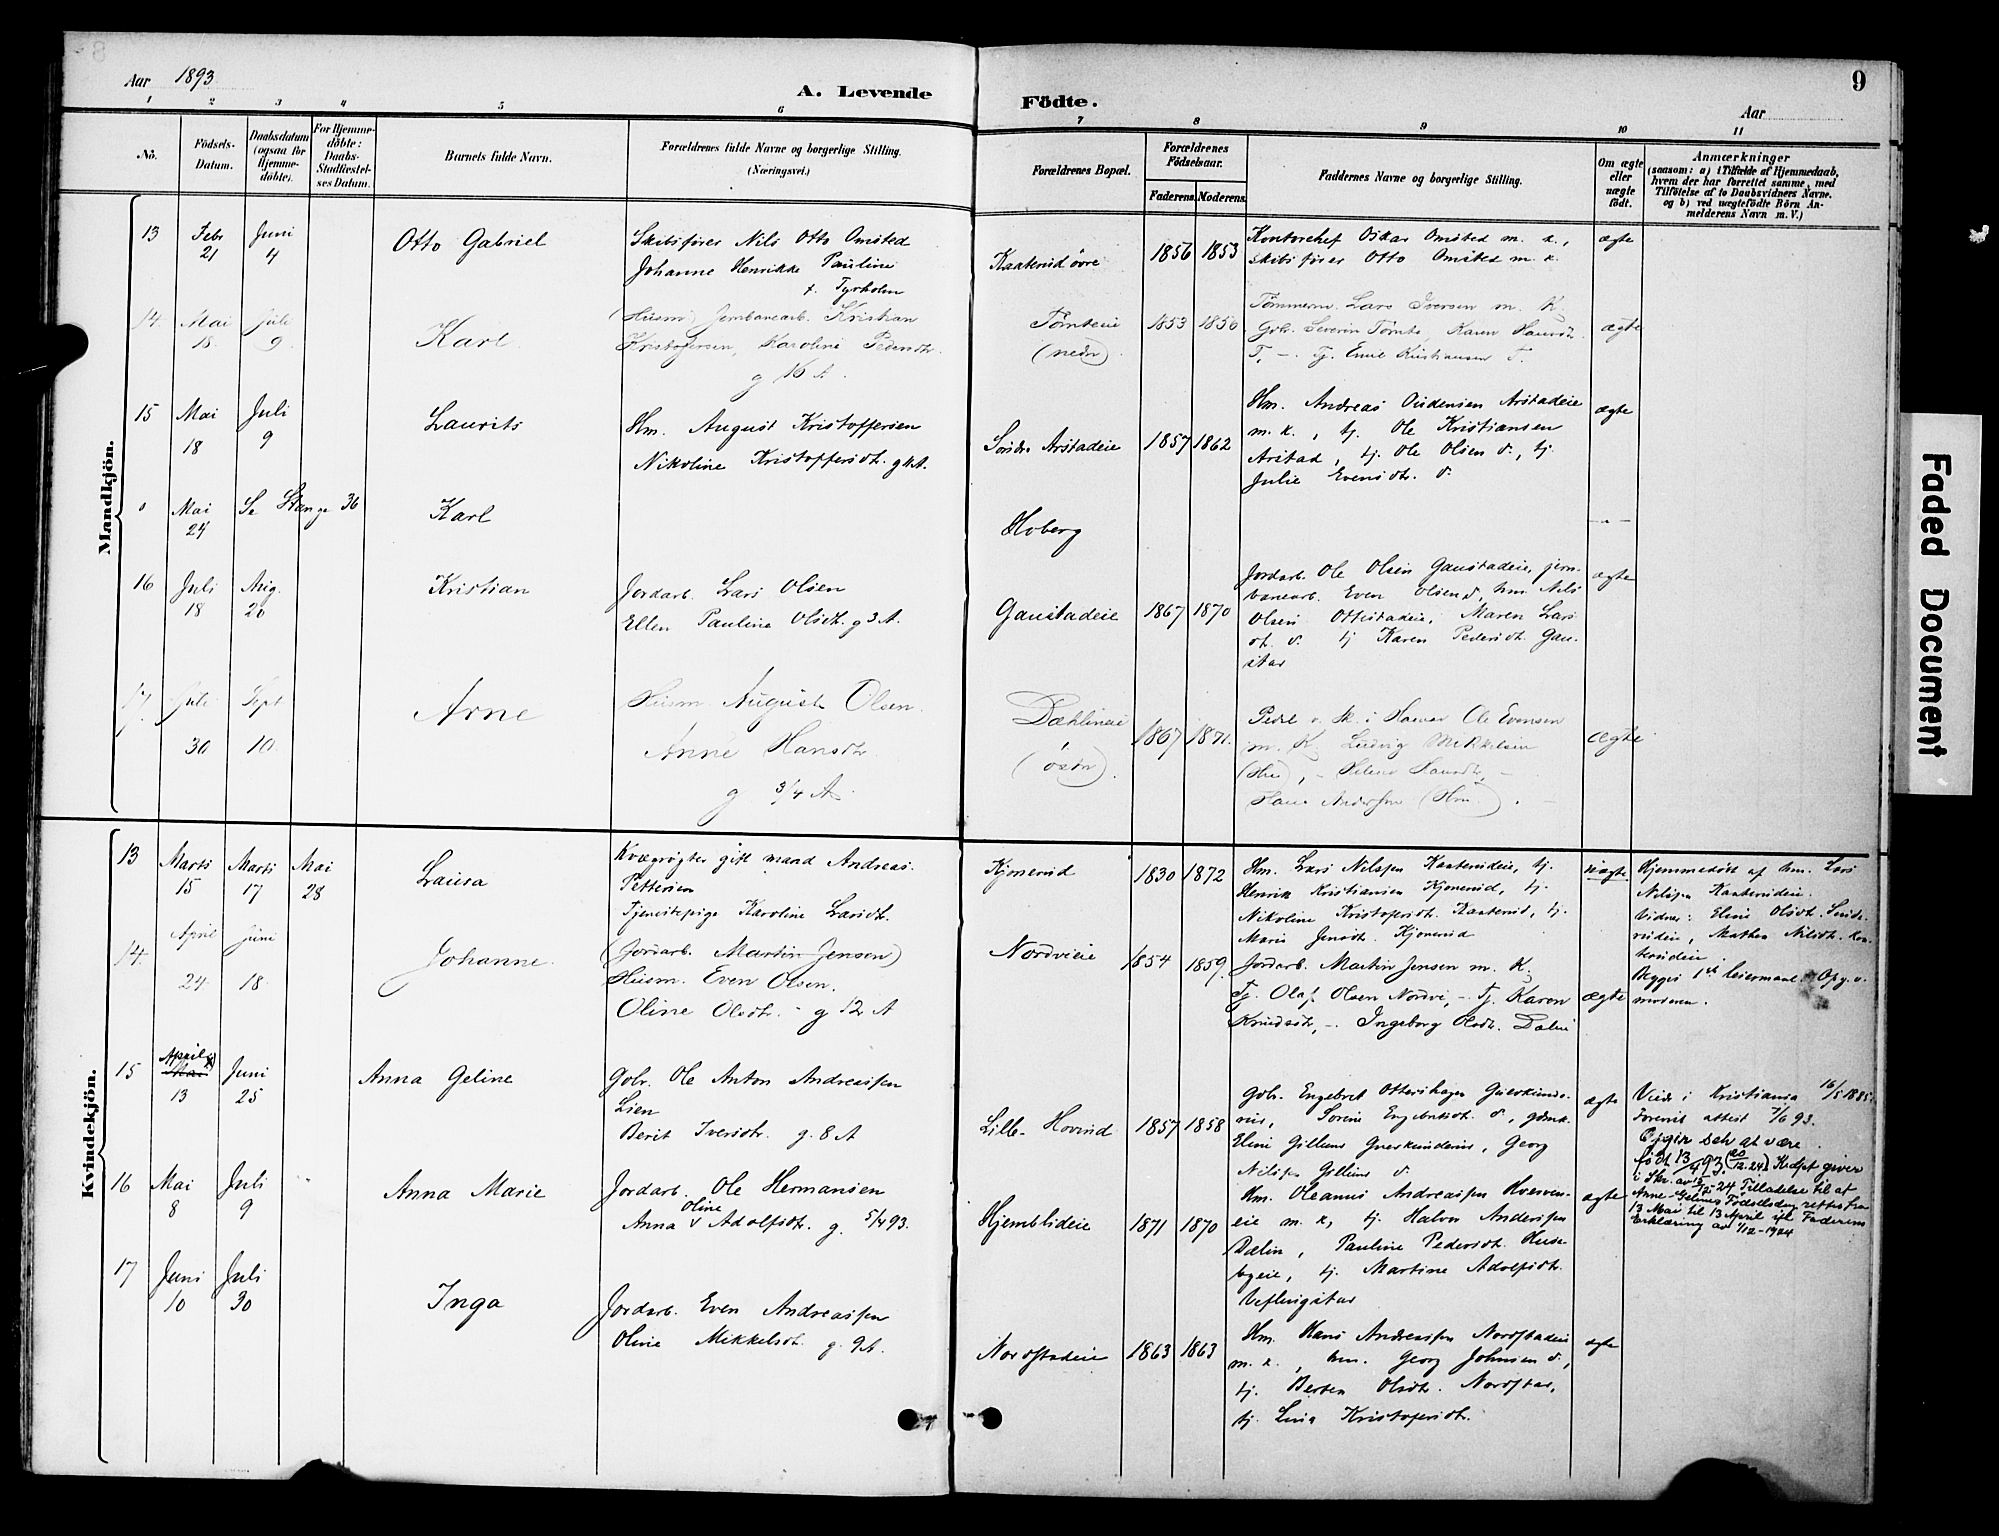 Aar 1893
A. Levende
Födte.
Aar
9
1 2 3 4 5 6 7 8 9 10 11
No.
Födsels-
Datum.
Daabsdatum
(ogsaa for
Hjemme-
döbte).
For Hjemme-
döbte:
Daabs-
Stadfæstel-
ses Datum.
Barnets fulde Navn.
Forældrenes fulde Navne og borgerlige Stilling.
(Næringsvei.)
Forældrenes Bopæl.
Forældrenes
Födselsaar.
Faderens. Moderens.
Faddernes Navne og borgerlige Stilling.
Om ægte
eller
uægte
födt.
Anmærkninger
(saasom: a) i Tilfælde af Hjemmedaab,
hvem der har forrettet samme, med
Tilföielse af to Daabsvidners Navne.
og b) ved uægtefödte Börn An-
melderens Navn m. V.)
Mandkjön.
13
Febr
21
Juni
4
Otto Gabriel
Skibsfører Nils Otto Omsted
Johanne Henrikke Pauline
f. Tyrholm
Kaaterud øvre
1856 1853
Kontorchef Oskar Omsted m. k.,
skibsfører Otto Omsted m. k.
ægte
14.
Mai
18
Juli
9
Karl
(Husm) Jernbanearb. Kristian
Kristofersen, Karoline Pedersdtr.
g 16 A.
Tømteeie
(nedr)
1853 1850
Tømmerm. Lars Iversen m. K,
Gbr. Severin Tømte, Karen Hansdtr.
T, -. Tj. Emil Kristiansen T.
ægte
15
Mai
18
Juli
9
Laurits
Hm. August Kristoffersen
Nikoline Kristoffersdt. g 11 A.
Søndr. Arstadeie
1857 1862
Hm. Andreas Oudensen Arstadeie
m. k., tj. Ole Kristiansen
Arstad, tj. Ole Olsen d., tj.
Julie Evensdt. d.
ægte
0
Mai
24
Se Stange 36
Karl
Hoberg
- " -
16
Juli
18
Aug.
20
Kristian
Jordarb. Lars Olsen
Ellen Pauline Olsdt. g 3 A.
Gaustadeie
1867 1870
Jordarb. Ole Olsen Gaustadeie, jern-
banearb. Even Olsen d., hm. Nils
Olsen Ottestadeie, Maren Lars-
dt. d. tj Karen Pedersdt. Gau-
stad
ægte
17
Juli
30
Sept
10.
Arne
Husm August Olsen.
Anne Hansdtr
g 3/4 A.
Dæhlineie
(østr).
1867 1871.
Pedel v. Sk. i Hamar Ole Evensen
m. K, Ludvig Mikkelsen
(Hm), - Helene Hansdtr, -
Hans Andersen (Hm). -
ægte
Kvindekjön.
13
Marts
15
Marts
17
Mai
28
Laura
Kvægrøgter gift mand Andreas
Pettersen
Tjenestepige Karoline Larsdt.
Kjonerud
1830 1872
Hm. Lars Nilssen Kaaterudeie, tj.
Henrik Kristiansen Kjonerud, tj.
Nikoline Kristofersdt. Kaaterud, tj.
Marie Jensdt. Kjonerud
uægte
Hjemmedøbt af hm. Lars
Nilssen Kaaterudeie.
Vidner: Eline Olsdt. Sande-
rudeie, Mathea Nilsdt. Kaa-
terudeie.
Begges 1ste leiermaal. Opg. v.
moderen.
14.
April
24
Juni
18
Johanne.
(Jordarb. Martin Jensen)
Husm. Even Olsen.
Oline Olsdtr. - g 12 A
Nordvieie
1854 1859.
Jordarb. Martin Jensen m. K,
Tj. Olaf Olsen Nordvi, -. Tj. Karen
Knudsdtr, -. Ingeborg Olsdt. Dælin
ægte
15
April x)
Mai
13
Juni
25
Anna Geline
Gbr. Ole Anton Andreassen
Lien
Berit Iversdtr. g. 8 A
Lille-Hovind
1857 1858
Gbr. Engebret Ottershagen Gaerkinde-
rus, Sorine Engebretsdt. d., gdmk.
Eline Gillund Gaerkinderus, Georg
Nilssen Gillund d
ægte
Viede i Kristiania 16/5 1885.
Forevist attest 7/6 93.
Opgir selv at være
født 13/4 93. (20/12.24). Kedpt giver
i Skr. av 13/12-24 Tilladelse til at
Anne-Gelines Fødselsdag rettes fra
13 Mai til 13 April ifl. Faderens
Erklæring av 1/12-1924
16
Mai
8
Juli
9
Anna Marie
Jordarb. Ole Hermansen
Anna Oline Adolfsdt. g. 5/4 93.
Hjemblideie
1871 1870
Hm. Oleanus Andreassen Hverven-
eie m. k, tj. Halvor Anderssen
Dælin, Pauline Pedersdt. Huse-
byeie, tj. Martine Adolfsdt.
Veflingstad
ægte
17
Juni
10
Juli
30
Inga
Jordarb. Even Andreassen
Oline Mikkelsdt. g. 9 A.
Nordstadeie
1863 1863
Hm. Hans Andreassen Nordstadeie
m. k., hm. Georg Johnsen d.,
tj. Berten Olsdt. Nordstad,
tj. Lina Kristofersdt.
ægte
Faded Document